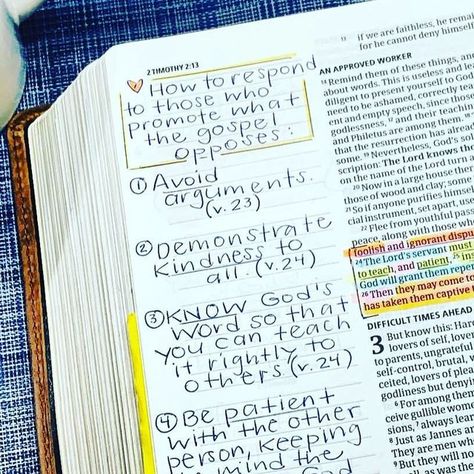 2 TIMOTHY 2:13
How to respond
to those who
promote what
the gospel
opposes:
① Avoid
arguments.
(v.23)
② Demonstrate
Kindness to
all. (v.24)
③ KNOW God's
Word so that
you can teach
it rightly to
others (v.24)
④ Be patient
with the other
person, keeping
mind the
if we are faithless, he rema
for he cannot deny himself
AN APPROVED WORKER
Remind them of these things, an
about words. This is useless and lea
diligent to present yourself to God
need to be ashamed, correctly tea
ent and empty speech, since those
godlessness, and their teaching
and Philetus are among them.
that the resurrection has alread
some. Nevertheless, God's so
scription: The Lord knows th
on the name of the Lord turn
Now in a large house the
those of wood and clay; some
So if anyone purifies himse
cial instrument, set apart, us
Flee from youthful pass
peace, along with those wh
foolish and ignorant dispu
The Lord's servant mus
to teach, and patient, ins
God will grant them repe
Then they may come to
has taken them captive t
DIFFICULT TIMES AHEAD
3 But know this: Hard
lovers of self, love
to parents, ungratefu
self-control, brutal,
ceited, lovers of plea
godliness but deny
For among them
ceive gullible wome
sions, always learn
Just as Jannes an
They are men wh
But they will n